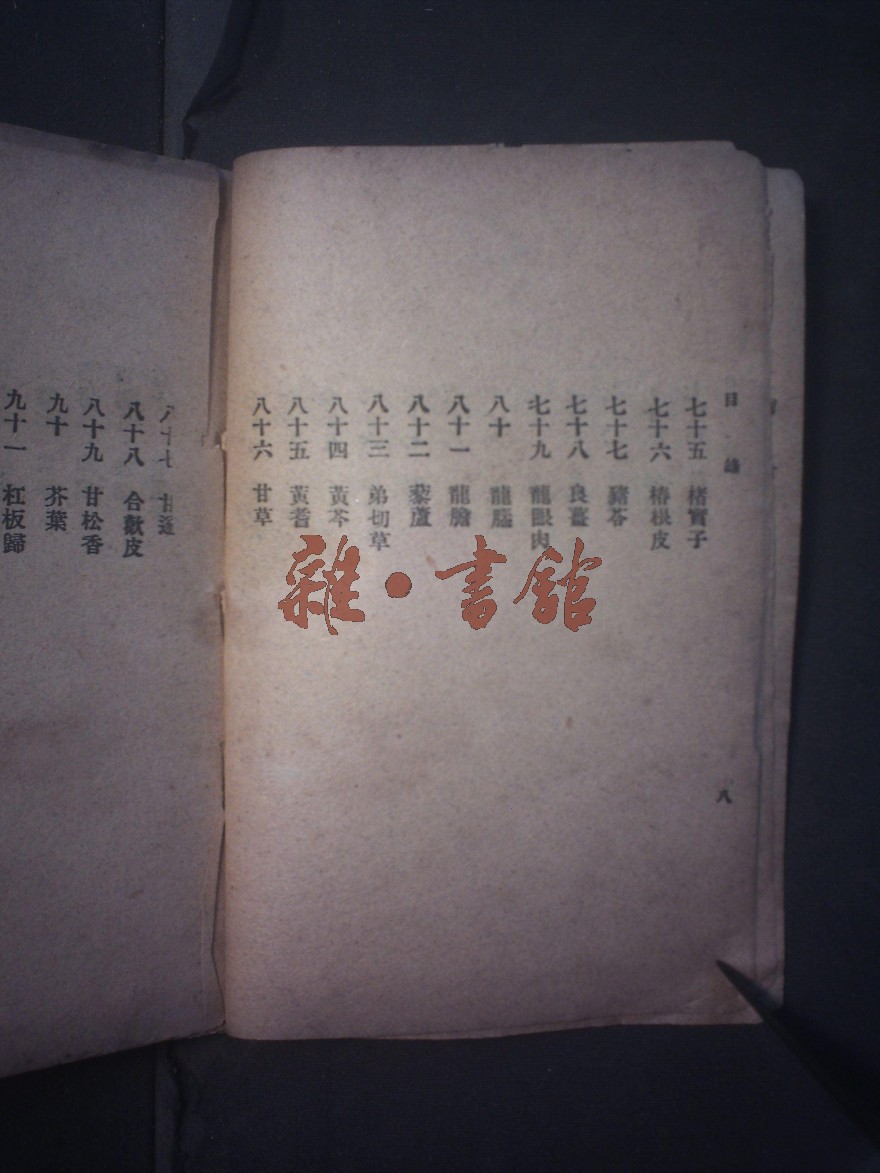 目錄
七十五 楮實子
七十六 椿根皮
七十七 豬苓
七十八 良薑
七十九 龍眼肉
八十 龍腦
八十一 龍膽
八十二 藜蘆
八十三 弟切草
八十四 黃芩
八十五 黃耆
八十六 甘草
八
八十七 甘遂
八十八 合歡皮
八十九 甘松香
九十 芥葉
九十一 杠板歸
雜·書館